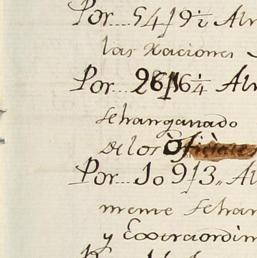 Por... 54/9½ Alm
las Raciones
Por 26/16¼ Alm
se han ganado
de los Oficiales
Por... 109/3,, Al
mente se han
y Exxtraordin